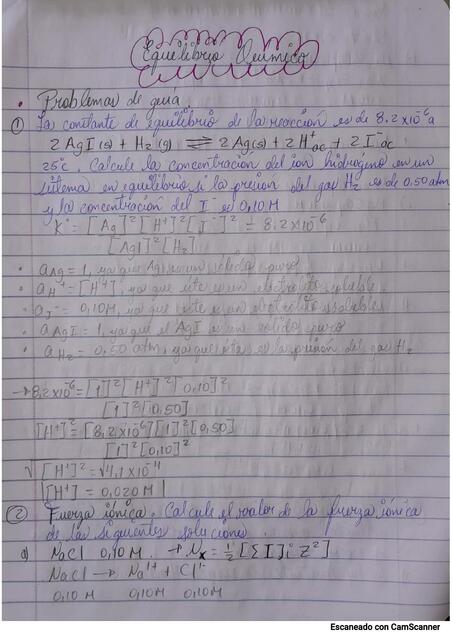 Equilibrio Químico
• Problemas de guía.
① La constante de equilibrio de la reacción es de 8.2x10⁻⁶ a
2 AgI(s) + H₂(g) ⇌ 2 Ag(s) + 2H⁺ac + 2I⁻ac
25°. Calcule la concentración del ion hidrógeno en un
sistema en equilibrio si la presion del gas H₂ es de 0.50 atm
y la concentración del I⁻ es 0,10 M
K = [Ag]² [H⁺]² [I⁻]² = 8.2x10⁻⁶
[AgI]² [H₂]
• aAg = 1, ya que Ag es un sólido puro
• aH⁺ = [H⁺], ya que este es un electrolito soluble.
• aI⁻ = 0,10M, ya que este es un electrolito soluble.
• aAgI = 1, ya que el AgI es un solido puro
• aH₂ = 0,50 atm, ya que esta es la presión del gas H₂
→ 8.2x10⁻⁶ = [1]² [H⁺]² [0,10]²
[1]² [0,50]
[H⁺]² = [8,2x10⁻⁶] [1]² [0,50]
[1]² [0,10]²
√[H⁺]² = √4,1x10⁻⁴
[H⁺] = 0,020 M
② Fuerza iónica. Calcule el valor de la fuerza iónica
de las siguientes soluciones.
a) NaCl 0,10 M. → = ½ [Σ[]i Z²]
NaCl → Na¹⁺ + Cl¹⁻
0,10 M 0,10M 0,10M
Escaneado con CamScanner